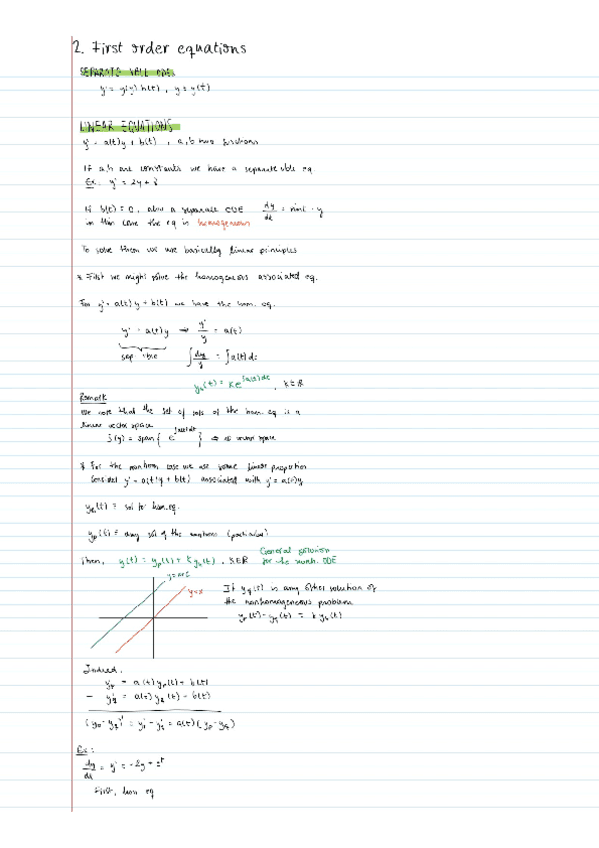 2. First order equations
SEPARATE VBLE ODES
y' = g(y) h(t) , y = y(t)
LINEAR EQUATIONS
y' = a(t)y + b(t) , a, b two functions
If a, b are constants we have a separate vble eq.
Ex. y' = 2y + 8
If b(t) = 0, also a separate ODE dy/dt = sint · y
in this case the eq is homogeneous
To solve them we use basically linear principles
First we might solve the homogeneous associated eq.
For y' = a(t)y + b(t) we have the hom. eq.
y' = a(t)y ⇒ y'/y = a(t)
sep. vble ∫ dy/y = ∫ a(t) dt
y_h(t) = K e^{∫a(t)dt} , K ∈ ℝ
Remark
We note that the set of sols of the hom. eq is a
linear vector space
S(y) = span { e^{∫a(t)dt} } ⇒ is vector space
For the nonhom case we use some linear properties
Consider y' = a(t)y + b(t) associated with y' = a(t)y
y_h(t) = sol to hom. eq.
y_p(t) = any sol of the nonhom (particular)
Then, y(t) = y_p(t) + K y_h(t) , K ∈ ℝ General solution
for the nonh. ODE
y = x + C
y = x
If y_q(t) is any other solution of
the nonhomogeneous problem
y_p(t) - y_q(t) = k y_h(t)
Indeed,
y'_p = a(t) y_p(t) + b(t)
- y'_q = a(t) y_q(t) + b(t)
(y_p - y_q)' = y'_p - y'_q = a(t) (y_p - y_q)
Ex:
dy/dt = y' = -2y +
First, hom eq